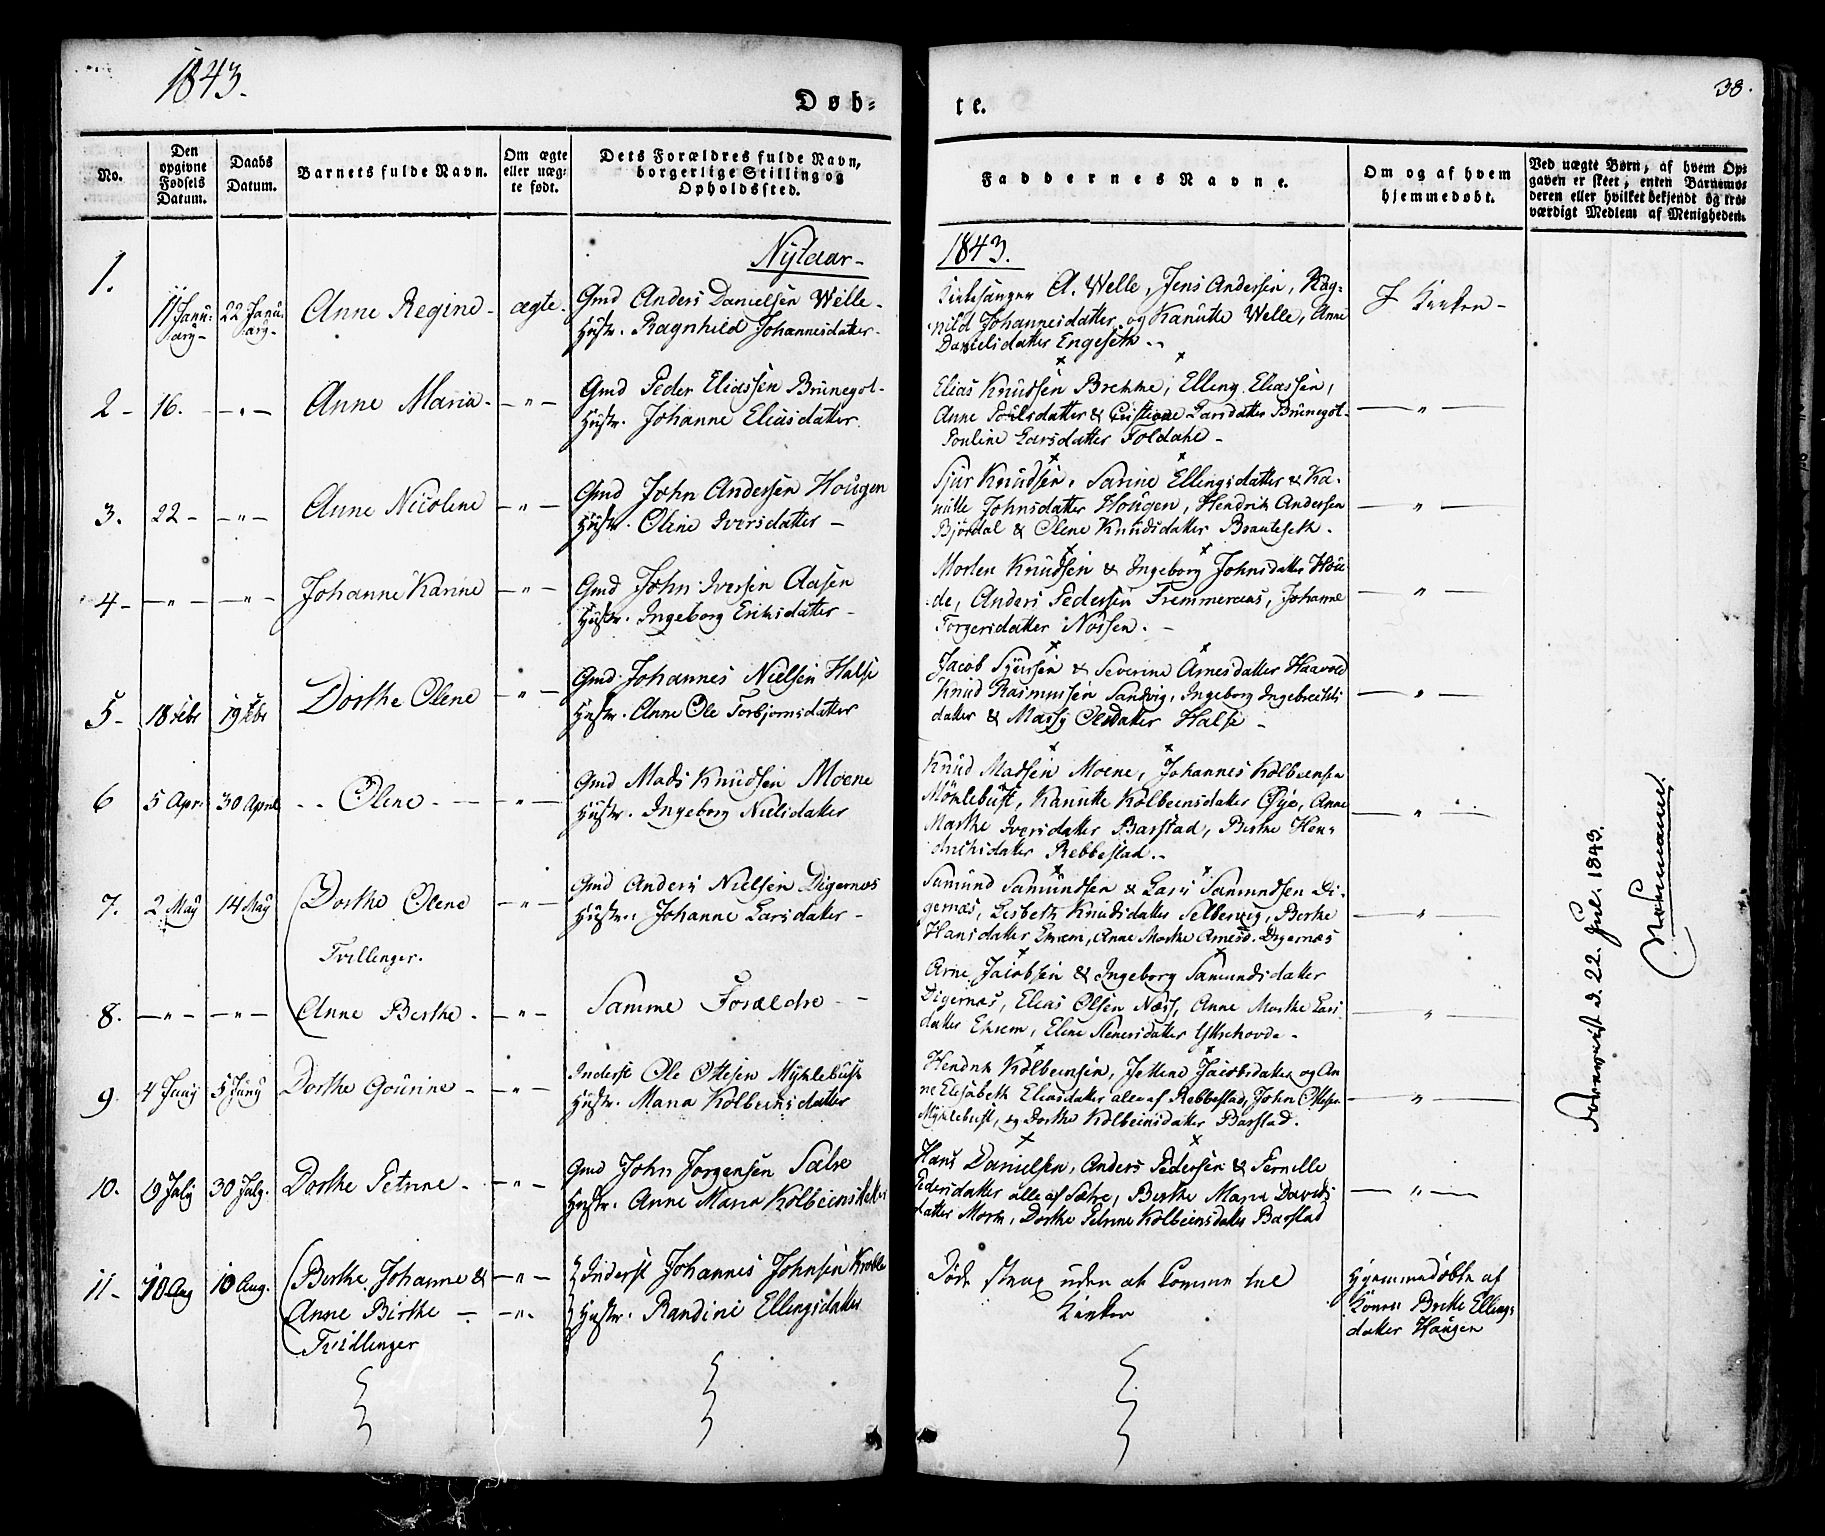 1843.
Døb-
te.
38.
No.
Den opgivne Fødsels Datum.
Daabs Datum.
Barnets fulde Navn.
Om ægte eller uæg- te født.
Dets Forældres fulde Navn, borgerlige Stilling og Opholdssted.
Faddernes Navne.
Om og af hvem hjemmedøbt.
Ved uægte Børn, af hvem Op- gaven er skeet, enten Barnemo- deren eller hvilket bekjendt og tro- værdigt Medlem af Menigheden.
Nytaar -
1843.
1.
11 Janu- ary -
22 Janu- ary -
Anne Regine -
ægte -
Gmd Anders Danielsen Welle -
Hustr. Ragnhild Johannesdatter -
Kirkesanger A. Welle, Jens Andersen, Rag-
nild Johannesdatter og Kanutte Welle, Anne
Danielsdatter Engeseth -
I Kirken -
2 -
16. -
- " -
Anne Maria -
- " -
Gmd Peder Eliassen Brunegot -
Hustr. Johanne Eliasdatter.
Elias Knudsen Brekke, Elling Eliassen,
Anne Poulsdatter & Cristiane Larsdatter Brunegot -
Pouline Larsdatter Foldahl -
- " -
3.
22 -
- " -
Anne Nicoline
- " -
Gmd John Andersen Hougen
Hustr. Oline Iversdatter -
Sjur Knudsen, Sarine Ellingsdatter & Ka-
nutte Johnsdatter Hougen, Hendrik Andersen
Bjørdal & Olene Knudsdatter Brauteseth -
- " -
4 -
- " -
- " -
Johanne Karine
- " -
Gmd John Iversen Aasen
Hustr. Ingeborg Eriksdatter -
Morten Knudsen & Ingeborg Johnsdatter Hou-
de, Anders Pedersen Johanne
Torgersdatter Nossen. -
- " -
5 -
18 Febr
19 Febr
Dorthe Olene
- " -
Gmd Johannes Nielsen Halse
Hustr. Anne Ole Torbjornsdatter
Jacob Sjursen & Severine Arnesdatter Haavold
Knud Rasmussen Sandvig, Ingeborg Ingebrectsli
datter & Massy Olsdatter Halse -
- " -
6
5 Apr.
30 April
- - Olene - -
- " -
Gmd Mads Knudsen Moene
Hustr. Ingeborg Nielsdatter
Knud Madsen Moene, Johannes Kolbeensen
Möklebust, Kanutte Kolbeensdatter Øye, Anne
Marthe Iversdatter Barstad, Berthe Hen-
dricksdatter Rebbestad. -
- " -
7.
2 May
14 May
Dorthe Olene
Tvillinger.
- " -
Gmd Anders Nielsen Digernæs
Hustr. Johanne Larsdatter -
Samund Samundsen & Lars Samundsen Di-
gernæs, Lisbeth Knudsdatter Selbervig, Berthe
Hansdatter Ekrem, Anne Marthe Arnesd. Digernæs
- " -
8.
- " -
- " -
Anne Berthe -
- " -
Samme Forældre -
Arne Jacobsen & Ingeborg Samundsdatter
Digernæs, Elias Olsen Næss, Anne Marthe Lars-
datter Ekrem, Elene Stenersdatter Yttrehovde -
- " -
9.
4 Juny
5 Juny
Dorthe Gourine -
- " -
Inderst Ole Ottesen Myklebust
Hustr. Maria Kolbeensdatter
Hendrik Kolbeensen, Jettine Jacobsdatter og An-
ne Elisabeth Eliasdatter alle af Rebbestad, John Ottesen
Myklebust, og Dorthe Kolbeinsdatter Barstad.
- " -
10.
19 July
30 July.
Dorthe Petrine -
- " -
Gmd John Jorgensen Sætre
Hustr. Anne Maria Kolbeinsdatter
Hans Danielsen, Anders Pedersen & Pernille
Pedersdatter alle af Sætre, Berthe Maria Davids
datter Mork, Dorthe Petrine Kolbeensdatter Barstad
- " -
11 -
10 Aug
10 Aug.
Berthe Johanne &
Anne Birthe -
Tvillinger
- " -
- " -
Inderst Johannes Johnsen
Hustr. Randine Ellingsdatter
Døde strax uden at komme til
Kirken
Hjemmedøbte af
Konen Brithe Ellings-
datter Haugen
d. 22. Jul. 1843.